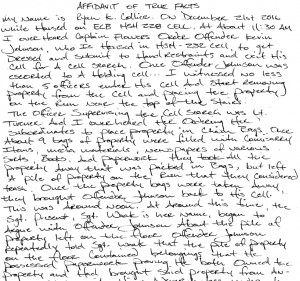 AFFIDAVIT OF TRUE FACTS
My Name is Ryan K. Collier. On December 21st 2016
while Housed on ECB HSH 228 CELL. At About 11:30 AM
I overheard Captain Flowers Order Offender Kevin
Johnson, who Is Housed in HSH-232 cell, to get
Dressed and Submit to Hand restraints and exit His
cell for A cell search. Once Offender Johnson was
escorted to A Holding cell... I witnessed no less
than 5 officers enter His cell And Start removing
property from the cell and placing the property
on the Run near the top of the Stairs.
The Officer Supervising the Cell Search was Lt.
Turner And I overheard the Ordering the
Subordinates to place property in Chain Bags. Once
About 9 bags of property were filled with Commissary
Items, work materials, newspapers of various
Sorts, Books, And paperwork. They took all the
property Away that was packed in Bags, but left
A pile of property on the Run that they considered
trash. Once the property bags were taken Away,
they brought Offender Johnson back to His Cell.
This was Around noon. At Around this time the
Sgt. Present, Sgt. Wonk is her Name, began to
Argue with Offender Johnson About the pile of
property left on the floor. Offender Johnson
repeatedly told Sgt. Wonk that the pile of property
on the floor Contained belongings that He
possessed Paperwork proving He both Owned the
property and Had brought Said property from